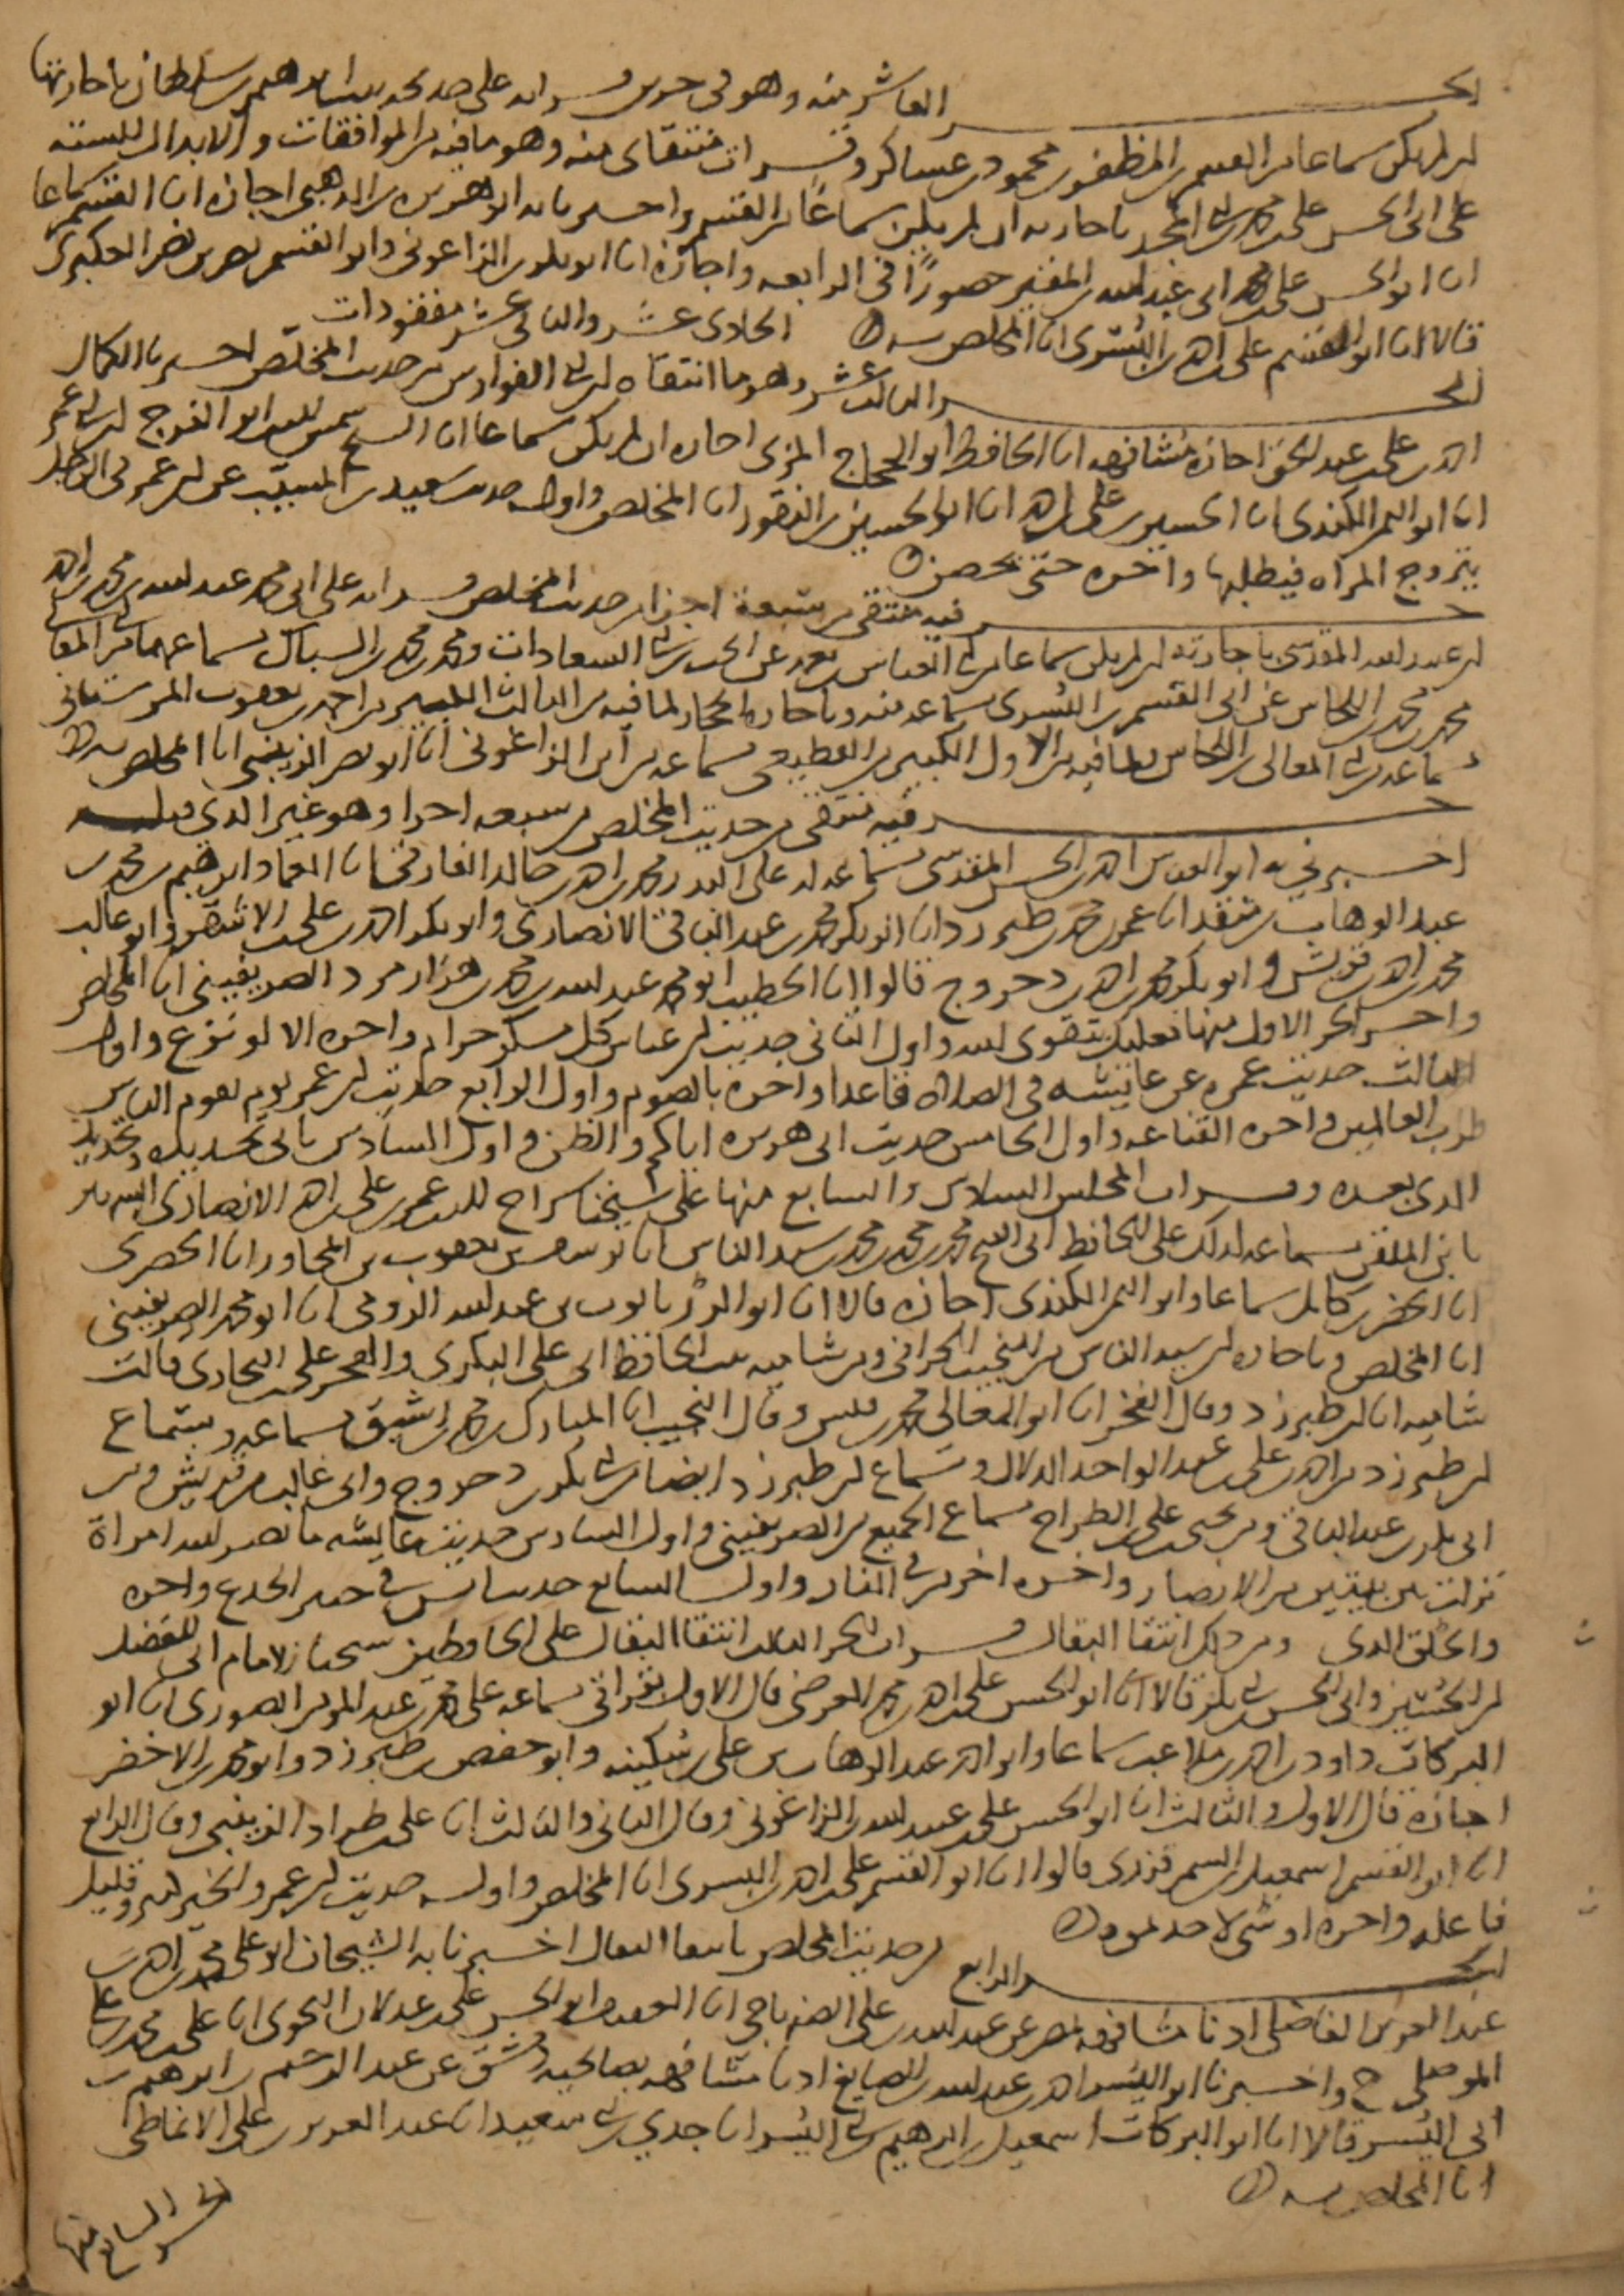 الجزء العاشر منه وهو في جزءين قرأته على محمد بن إبراهيم بن سلطان بإجازته
إن لم يكن سماعا من القسم بن المظفر بن محمود بن عساكر وقرأت منتقاى منه وهو ما فيه من الموافقات والابدال للستة
على أبي الحسن علي بن محمد بن أبي المجد بإجازته إن لم يكن سماعًا من القسم وأخبرنا به أبو هريرة بن الذهبي إجازة انا القسم سماعا
انا أبو الحسن علي بن أبي عبد الله بن المقير حضورًا في الرابعة وإجازة انا أبو بكر بن الزاغوني وأبو القسم نصر بن نصر العكبري
قالا انا أبو القسم علي بن أحمد بن البسري انا المخلص به الحادي عشر والثاني عشر مفقودات
الجزء الثالث عشر وهو ما انتقاه ابن أبي الفوارس من حديث المخلص أخبرنا الكمال
أحمد بن علي بن عبد الحق إجازة مشافهة انا الحافظ أبو الحجاج المزي إجازة إن لم يكن سماعا انا الشيخ شمس الدين أبو الفرج ابن أبي عمر
انا أبو اليمن الكندي انا الحسين بن علي بن أحمد انا أبو الحسين بن النقور انا المخلص وأوله حديث سعيد بن المسيب عن ابن عمر في الرجل
يتزوج المرأة فيطلقها وآخره حتى تحصن
جزء فيه منتقى من سبعة أجزاء من حديث المخلص قرأته على أبي محمد عبد الله بن محمد بن أحمد
ابن عبيد الله المقدسي بإجازته إن لم يكن سماعا من أبي العباس
محمد بن محمد بن اللحاس عن أبي القسم بن البسري سماعه منه وبإجازة الحجار لما فيه من الثالث الكبير من أحمد بن يعقوب المارستاني
بسماعه من أبي المعالي بن اللحاس ولما فيه من الأول الكبير من القطيعي بسماعه من ابن الزاغوني انا أبو نصر الزينبي انا المخلص به
جزء فيه منتقى من حديث المخلص من سبعة أجزاء وهو غير الذي قبله
أخبرني به أبو العباس أحمد بن الحسن المقدسي بسماعه له على البدر محمد بن أحمد بن خالد الفارقي انا العماد إبراهيم بن محمد بن
عبد الوهاب بن منقذ انا عمر بن محمد بن طبرزد انا أبو بكر محمد بن عبد الباقي الأنصاري وأبو بكر أحمد بن علي بن الأشقر وأبو غالب
محمد بن أحمد بن قريش وأبو بكر محمد بن أحمد بن دحروج قالوا انا الخطيب أبو محمد عبد الله بن محمد بن هزارمرد الصريفيني انا المخلص
وآخر الجزء الأول منها فعليك بتقوى الله وأول الثاني حديث ابن عباس كل مسكر حرام وآخره الا لو نزع وأول
الثالث حديث عمرة عن عائشة في الصلاة قاعدا وآخره بالصوم وأول الرابع حديث ابن عمر يوم يقوم الناس
لرب العالمين وآخره القناعة وأول الخامس حديث أبي هريرة إياكم والظن وأول السادس
الذي بعده وقرأت المجلس السادس والسابع منها على شيخنا سراج الدين عمر بن علي بن أحمد الأنصاري الشهير
بابن الملقن بسماعه لذلك على الحافظ أبي الفتح محمد بن محمد بن محمد بن سيد الناس انا يوسف بن يعقوب بن المجاور
انا الخضر بن كامل سماعا وأبو اليمن الكندي إجازة قالا انا أبو الدر ياقوت بن عبد الله الرومي انا أبو محمد الصريفيني
انا المخلص وبإجازة ابن سيد الناس من النجيب الحراني ومن شامية بنت الحافظ أبي علي البكري والفخر علي بن البخاري قالت
شامية انا ابن طبرزد وقال الفخر انا أبو المعالي محمد وقال النجيب انا المبارك بسماعه وبسماع
ابن طبرزد من أحمد بن علي بن عبد الواحد الدلال وبسماع ابن طبرزد أيضا من أبي بكر بن دحروج وأبي غالب بن قريش ومن
أبي بكر بن عبد الباقي ومن يحيى بن علي بن الطراح بسماع الجميع من الصريفيني وأول السادس حديث عائشة ما ضر الله امرأة
نزلت بين بيتين من الأنصار وآخره أخر من في النار وأول السابع حديث أنس في حنين الجذع وآخره
والخلق الذي ومن ذلك انتقاء البقال قرأت الجزء الثالث انتقاء البقال على الحافظين شيخنا الإمام أبي الفضل
ابن الحسين وأبي الحسن بن أبي بكر قالا انا أبو الحسن علي بن أحمد بن محمد العرضي قال الأول بقراءتي بسماعه على محمد بن عبد المؤمن الصوري انا أبو
البركات داود بن أحمد بن ملاعب سماعا وأبو أحمد عبد الوهاب بن علي بن سكينة وأبو حفص بن طبرزد وأبو محمد بن الأخضر
إجازة قال الأول والثالث انا أبو الحسن علي بن عبيد الله بن الزاغوني وقال الثاني والثالث انا علي بن طراد الزينبي وقال الرابع
انا أبو القسم إسمعيل بن السمرقندي قالوا انا أبو القسم علي بن أحمد بن البسري انا المخلص وأوله حديث ابن عمرو الخير كثير وقليل
فاعله وآخره
الجزء الرابع من حديث المخلص بانتقاء البقال أخبرنا به الشيخان أبو علي محمد بن أحمد بن
عبد العزيز الفاضلي إذنا مشافهة بمصر عن عبد الله بن علي الصنهاجي انا أبو الحسن علي بن عدلان النحوي انا علي بن محمد بن علي
الموصلي ح وأخبرنا أبو اليسر أحمد بن عبد الله بن الصايغ إذنا مشافهة بصالحية دمشق عن عبد الرحيم بن إبراهيم بن
أبي اليسر قالا انا أبو البركات إسمعيل بن إبراهيم بن أبي اليسر انا جدي انا عبد العزيز بن علي الأنماطي
انا المخلص به
الجزء السابع منها